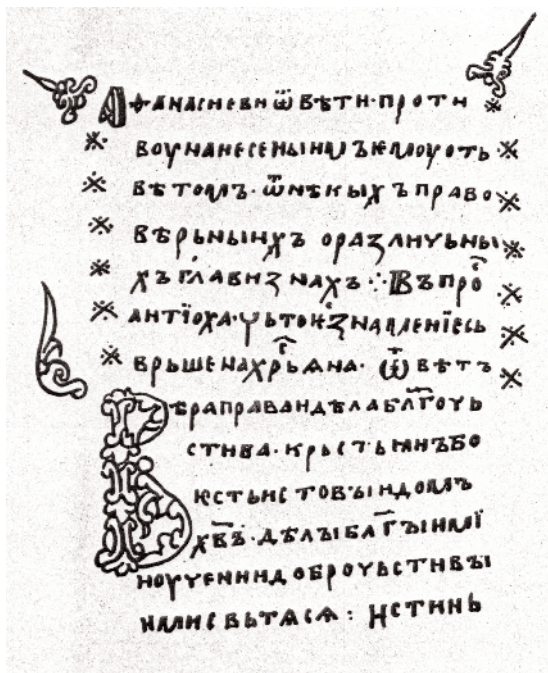 Афанасиеви ѿвѣти · проти
воу нанесенымъ емоу отъ
вѣтомъ · ѿ нѣкыхъ право
вѣрьныихъ о различьны
хъ главизнахъ ·:· Въпро҇
антїоха · чьто ѥ҇ знамленїе съ
врьшена хр҇ьꙗна · ѿвѣтъ
Вѣра права и дѣла блг҇оуь
стива · крьстьꙗнъ бо
ѥсть истовыи домъ
хв҃ъ · дѣлы благ҇ыими ї
ноучении доброчьстивы
ими съвьтаѧсѧ : истинь